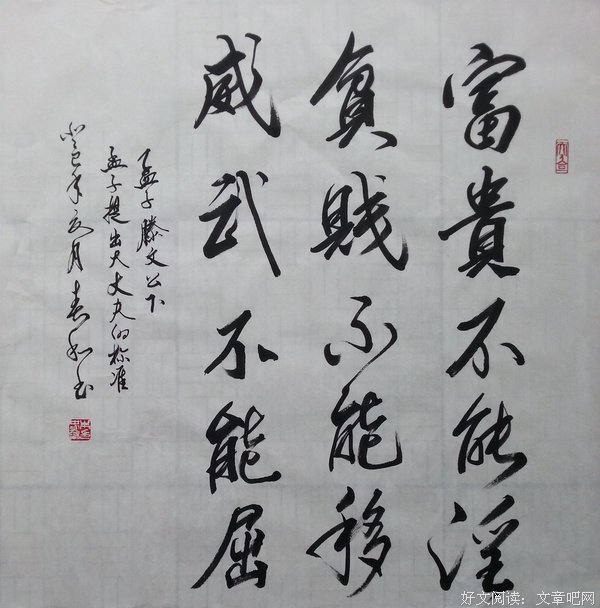 富貴不能淫
貧賤不能移
威武不能屈
孟子滕文公下
孟子提出大丈夫的标准
癸巳年夏月春和书
好文阅读：文章吧网